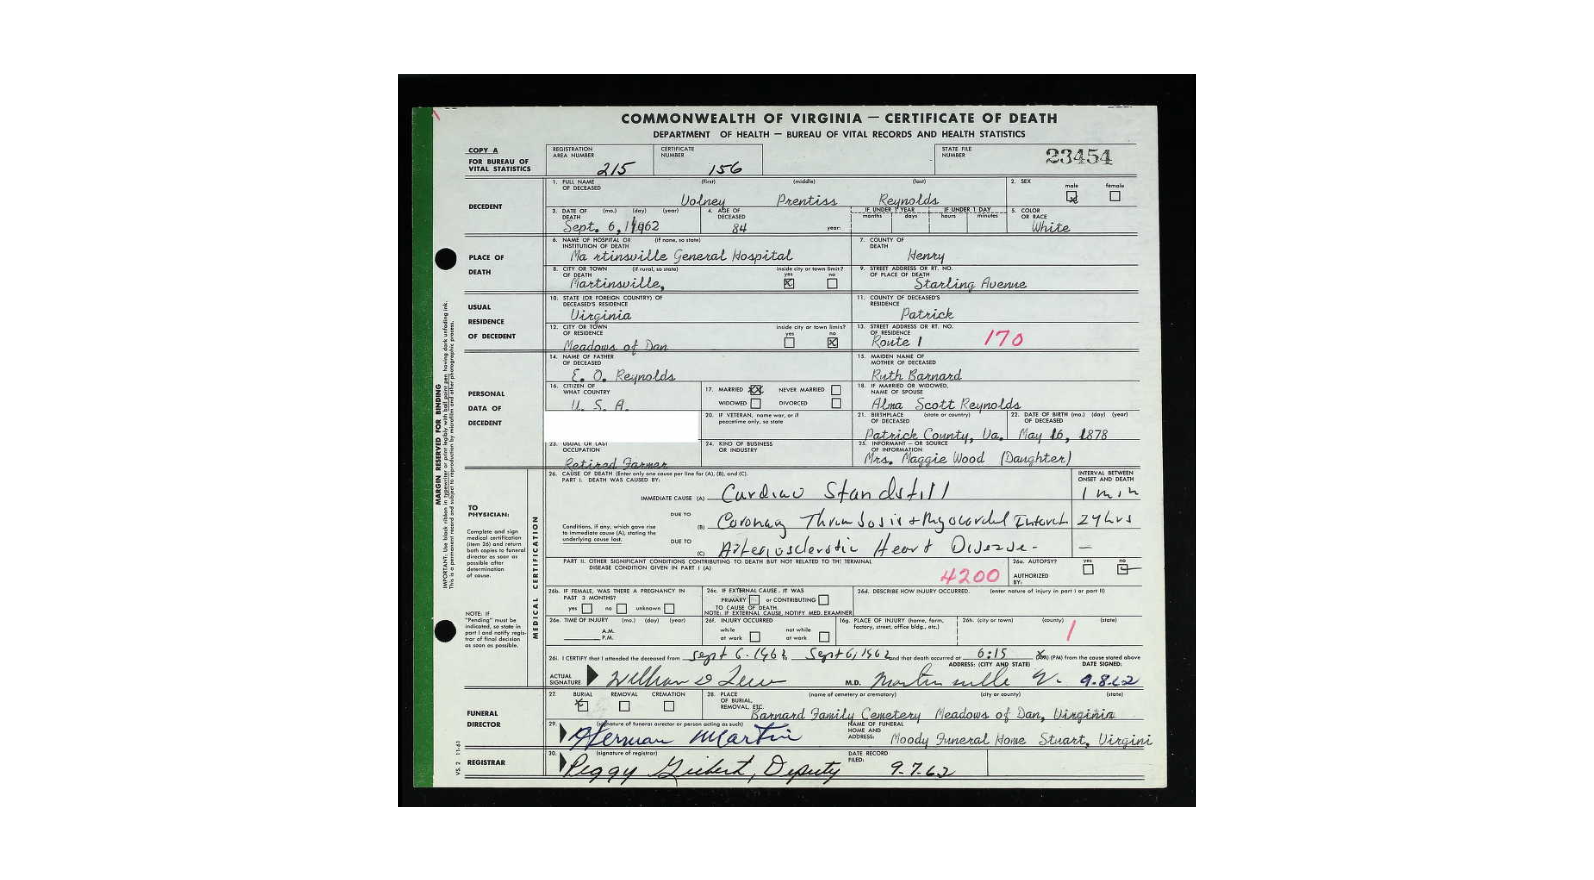 COMMONWEALTH OF VIRGINIA — CERTIFICATE OF DEATH
DEPARTMENT OF HEALTH — BUREAU OF VITAL RECORDS AND HEALTH STATISTICS
COPY A
FOR BUREAU OF VITAL STATISTICS
REGISTRATION AREA NUMBER 215
CERTIFICATE NUMBER 156
STATE FILE NUMBER 23454
DECEDENT
1. FULL NAME OF DECEASED (first) (middle) (last)
Volney Prentiss Reynolds
2. SEX male female
3. DATE OF DEATH (mo.) (day) (year)
Sept. 6, 1962
4. AGE OF DECEASED
84 years
IF UNDER 1 YEAR months days
IF UNDER 1 DAY hours minutes
5. COLOR OR RACE
White
PLACE OF DEATH
6. NAME OF HOSPITAL OR INSTITUTION OF DEATH (if none, so state)
Ma rtinsville General Hospital
7. COUNTY OF DEATH
Henry
8. CITY OR TOWN OF DEATH (if rural, so state)
inside city or town limits? yes no
Martinsville,
9. STREET ADDRESS OR RT. NO. OF PLACE OF DEATH
Starling Avenue
USUAL RESIDENCE OF DECEDENT
10. STATE (OR FOREIGN COUNTRY) OF DECEASED'S RESIDENCE
Virginia
11. COUNTY OF DECEASED'S RESIDENCE
Patrick
12. CITY OR TOWN OF RESIDENCE
inside city or town limits? yes no
Meadows of Dan
13. STREET ADDRESS OR RT. NO. OF RESIDENCE
Route 1 170
PERSONAL DATA OF DECEDENT
14. NAME OF FATHER OF DECEASED
E. O. Reynolds
15. MAIDEN NAME OF MOTHER OF DECEASED
Ruth Barnard
16. CITIZEN OF WHAT COUNTRY
U. S. A.
17. MARRIED NEVER MARRIED
WIDOWED DIVORCED
18. IF MARRIED OR WIDOWED, NAME OF SPOUSE
Alma Scott Reynolds
20. IF VETERAN, name war, or if peacetime only, so state
21. BIRTHPLACE OF DECEASED (state or country)
Patrick County, Va.
22. DATE OF BIRTH OF DECEASED (mo.) (day) (year)
May 16, 1878
23. USUAL OR LAST OCCUPATION
Retired Farmer
24. KIND OF BUSINESS OR INDUSTRY
25. INFORMANT — OR SOURCE OF INFORMATION
Mrs. Maggie Wood (Daughter)
MARGIN RESERVED FOR BINDING
TO PHYSICIAN:
Complete and sign medical certification (item 26) and return both copies to funeral director as soon as possible after determination of cause.
NOTE: IF "Pending" must be indicated, so state in part I and notify registrar of final decision as soon as possible.
MEDICAL CERTIFICATION
26. CAUSE OF DEATH (Enter only one cause per line for (A), (B), and (C).
PART I. DEATH WAS CAUSED BY:
INTERVAL BETWEEN ONSET AND DEATH
IMMEDIATE CAUSE (A) Cardiac Standstill 1 min
Conditions, if any, which gave rise to immediate cause (A), stating the underlying cause last.
DUE TO (B) Coronary Thrombosis + Myocardial Infarct 24 hrs
DUE TO (C) Arteriosclerotic Heart Disease - —
PART II. OTHER SIGNIFICANT CONDITIONS CONTRIBUTING TO DEATH BUT NOT RELATED TO THE TERMINAL DISEASE CONDITION GIVEN IN PART I (A)
4200
26a. AUTOPSY? yes no
AUTHORIZED BY:
26b. IF FEMALE, WAS THERE A PREGNANCY IN PAST 3 MONTHS?
yes no unknown
26c. IF EXTERNAL CAUSE, IT WAS
PRIMARY or CONTRIBUTING
TO CAUSE OF DEATH.
NOTE: IF EXTERNAL CAUSE, NOTIFY MED. EXAMINER
26d. DESCRIBE HOW INJURY OCCURRED. (enter nature of injury in part I or part II)
26e. TIME OF INJURY (mo.) (day) (year)
A.M.
P.M.
26f. INJURY OCCURRED
while at work not while at work
16g. PLACE OF INJURY (home, farm, factory, street, office bldg., etc.)
26h. (city or town) (county) (state)
1
26i. I CERTIFY that I attended the deceased from Sept 6 - 1962 Sept 6, 1962 and that death occurred at 6:15 (PM) from the cause stated above
ACTUAL SIGNATURE William
M.D.
ADDRESS: (CITY AND STATE)
Martinsville
DATE SIGNED:
9.8.62
FUNERAL DIRECTOR
27. BURIAL REMOVAL CREMATION
28. PLACE OF BURIAL, REMOVAL, ETC. (name of cemetery or crematory) (city or county) (state)
Barnard Family Cemetery Meadows of Dan, Virginia
29. (signature of funeral director or person acting as such)
Herman Martin
NAME OF FUNERAL HOME AND ADDRESS:
Moody Funeral Home Stuart, Virgini
REGISTRAR
30. (signature of registrar)
Peggy Deputy
DATE RECORD FILED:
9.7.62
VS. 2 11-61